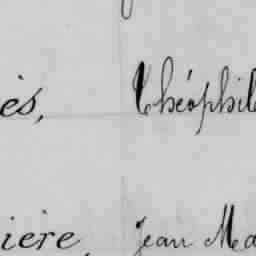 ès, Théophil
ière, Jean Ma